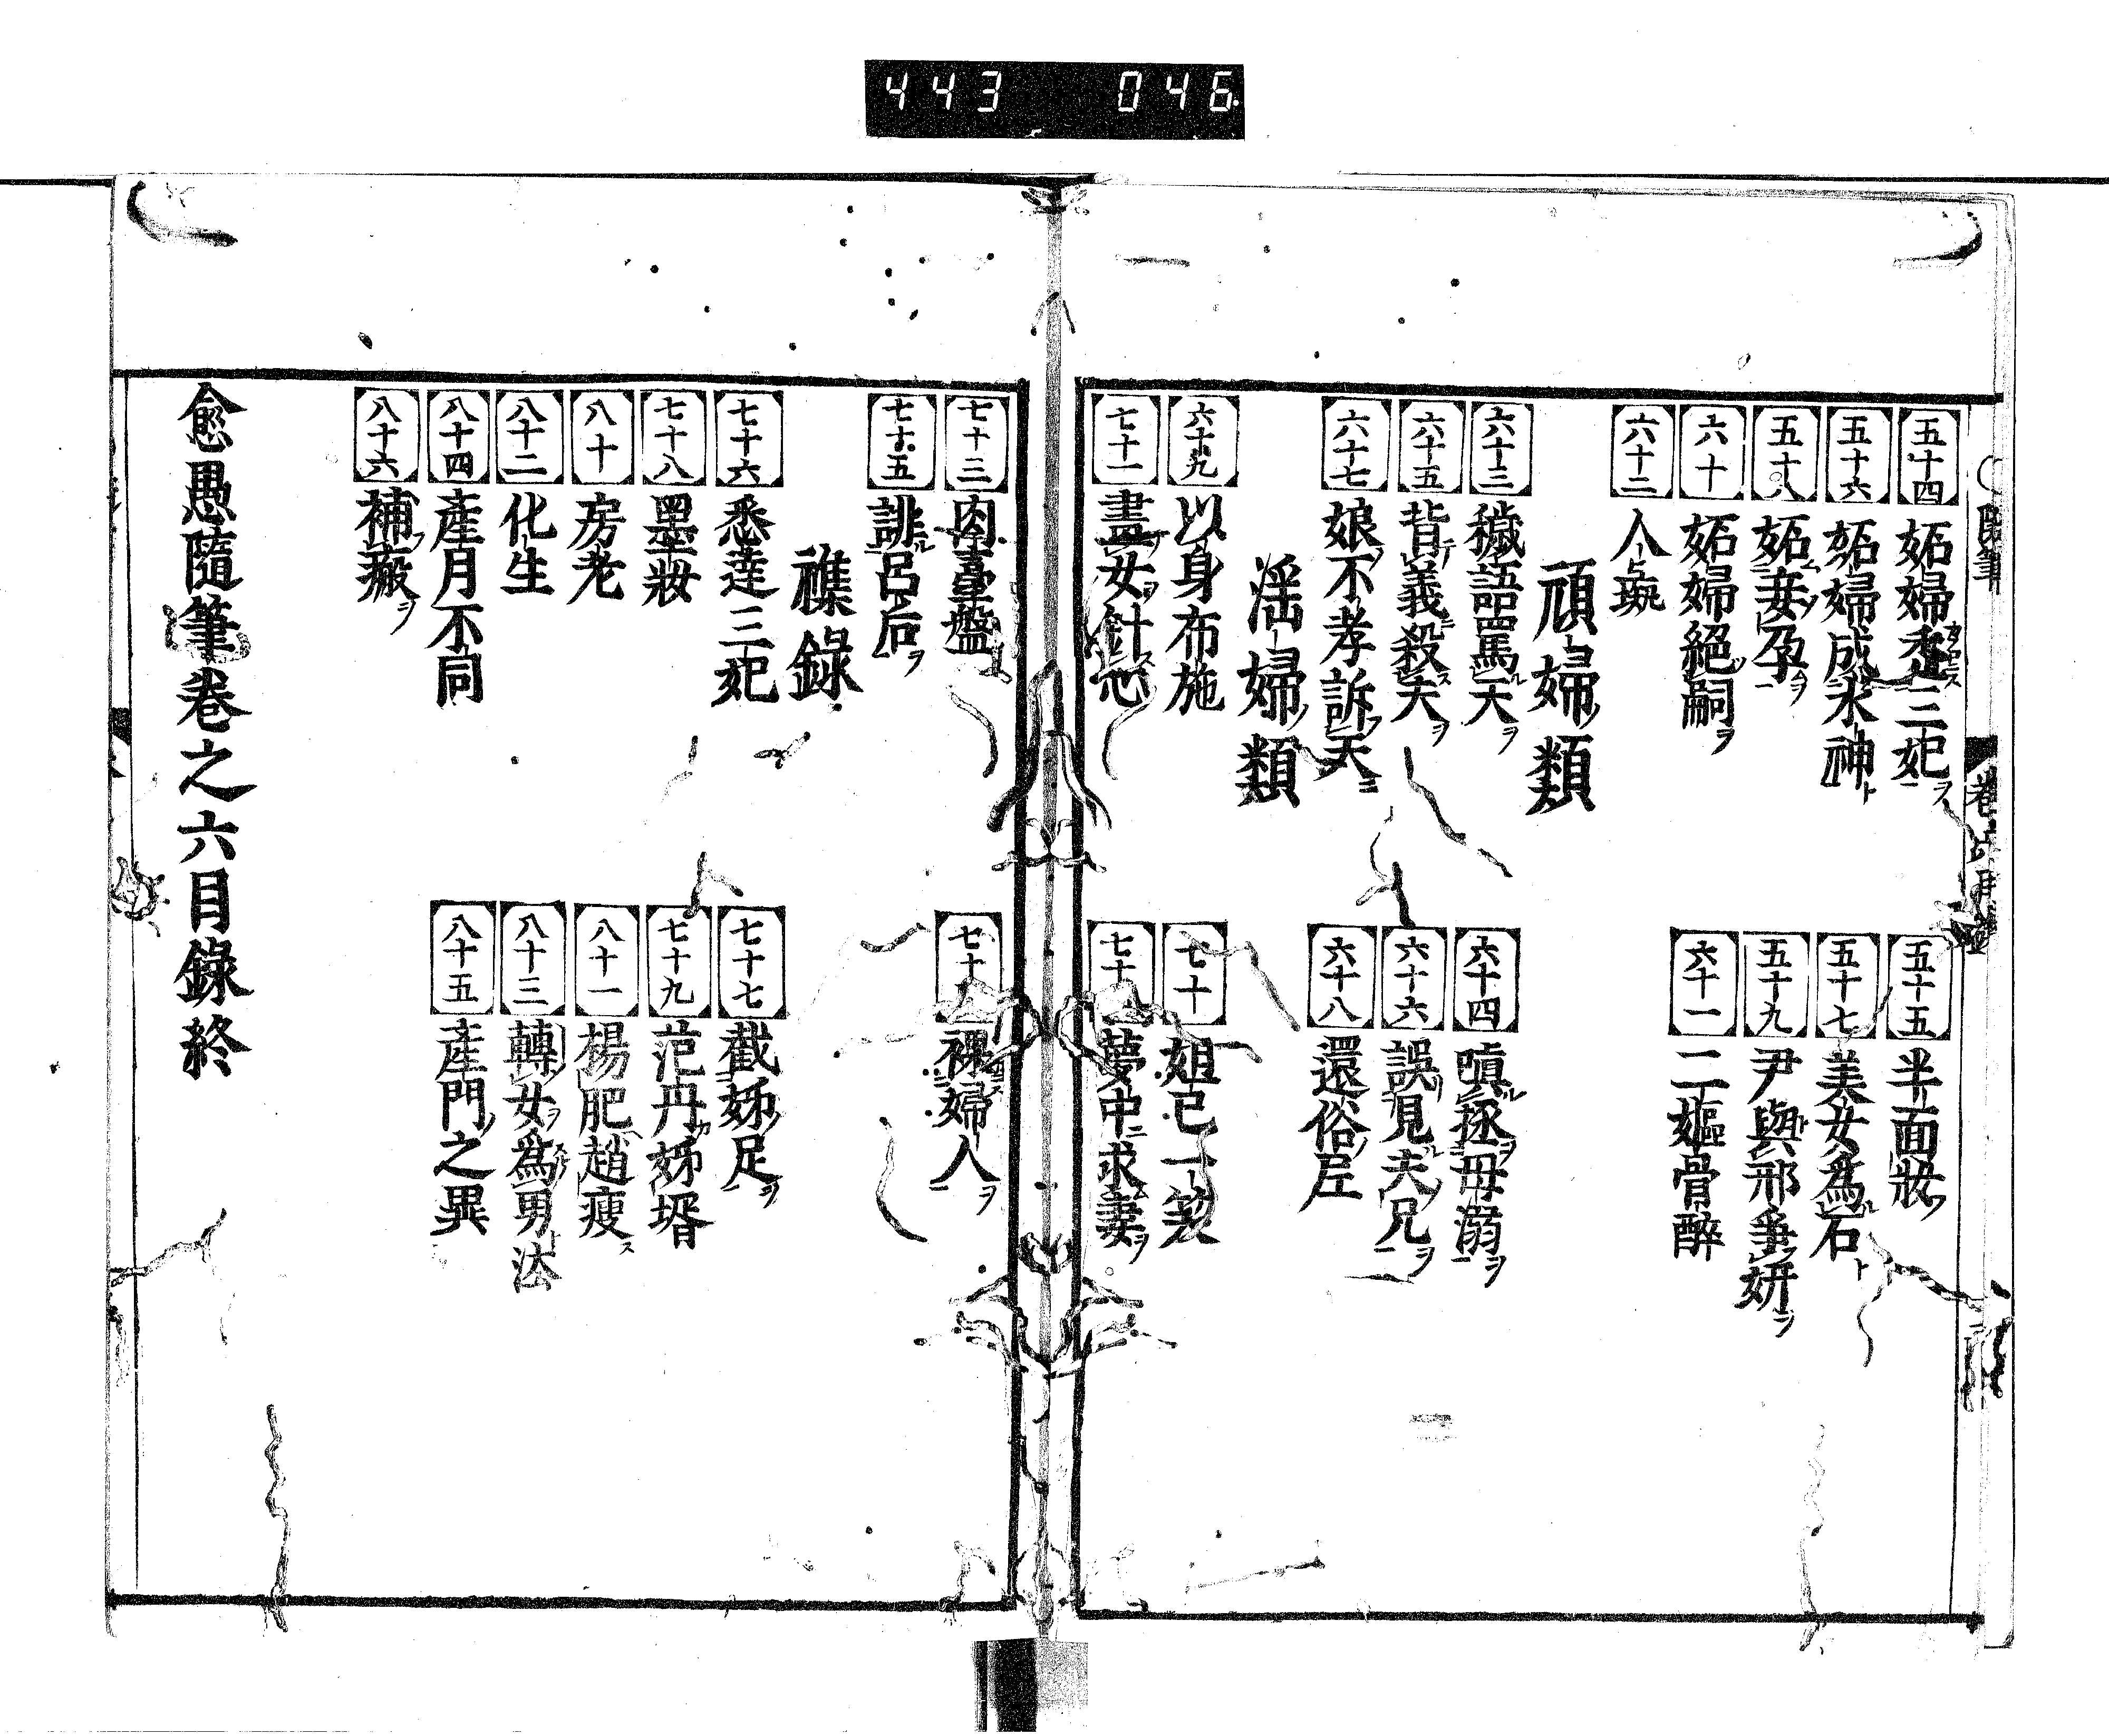 443 046
五十四 妬婦乗三妃ヲ
五十五 半面妝
五十六 妬婦成水神ト
五十七 美女為石ト
五十八 妬妾孕ヲ
五十九 尹與邢争妍ヲ
六十 妬婦絕嗣ヲ
六十一 二嫗骨醉
六十二 人彘
頑婦類
六十三 穢語罵夫ヲ
六十四 嗔拯母溺ヲ
六十五 背義殺夫ヲ
六十六 誤見夫兄ヲ
六十七 娘不孝訴天ニ
六十八 還俗尼
婬婦類
六十九 以身布施
七十 妲己一笑
七十一 畫女針心
夢中求妻ヲ
七十三 肉臺盤
裸婦人ヲ
七十五 誹呂后ヲ
襍錄
七十六 悉達三妃
七十七 截姊足ヲ
七十八 墨妝
七十九 范丹姊壻
八十 房老
八十一 楊肥趙瘦
八十二 化生
八十三 轉女為男法
八十四 產月不同
八十五 產門之異
八十六 補瘢ヲ
愈愚隨筆卷之六目錄終